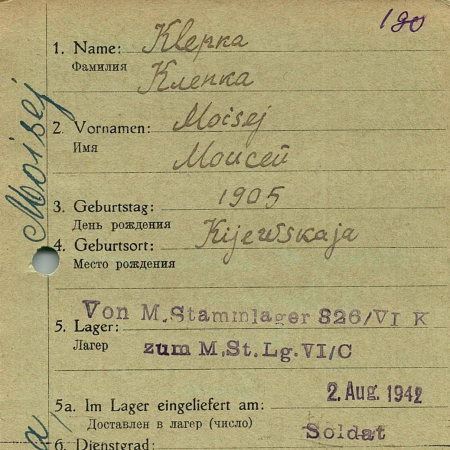 190
1. Name: Klepka
Фамилия Клепка
2. Vornamen: Moisej
Имя Моисей
3. Geburtstag: 1905
День рождения
4. Geburtsort: Kijewskaja
Место рождения
Von M. Stammlager 326/VI K
5. Lager:
Лагер zum M. St. Lg. VI/C
5a. Im Lager eingeliefert am: 2. Aug. 1942
Доставлен в лагер (число)
6. Dienstgrad: Soldat
Moisej